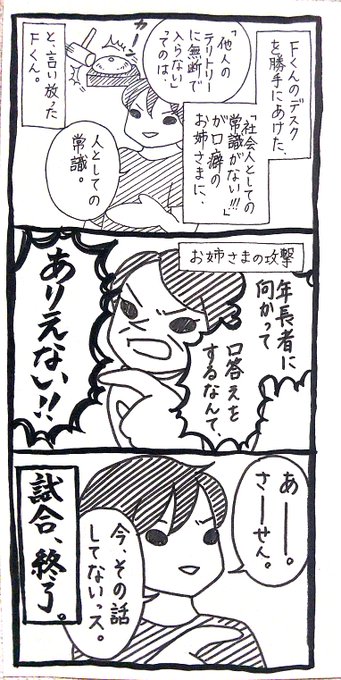 Fくんのデスク
を勝手にあけた、
「社会人としての
常識がない!!!」
が口癖の
お姉さまに、
「他人の
テリトリー
に無断で
入らない」
ってのは、
カーン
人としての
常識。
と、言い放った
Fくん。
お姉さまの攻撃
年長者に
向かって
口答えを
するなんて、
ありえない!!
あーー。
さーーせん。
今、その話
してないっス。
試合、終了。